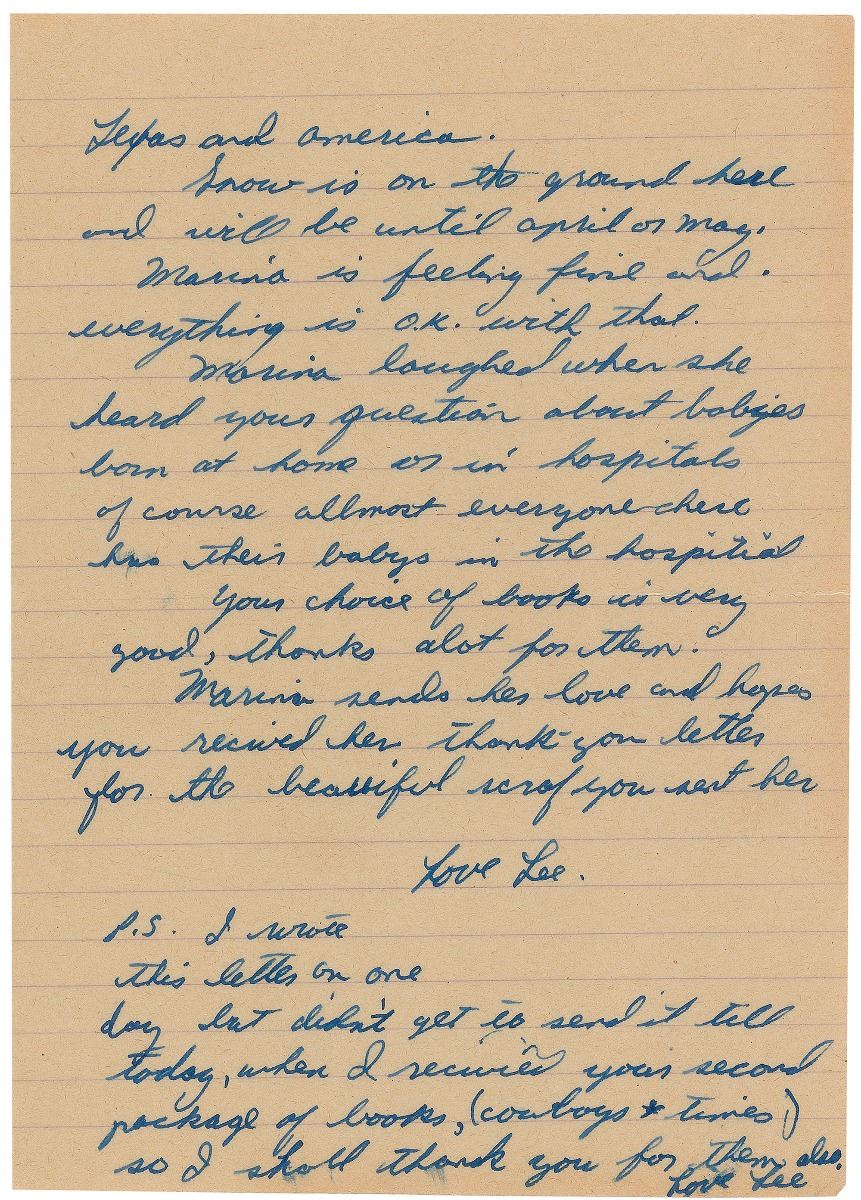 Texas and America.
Snow is on the ground here
and will be until april or may.
Marina is feeling fine and
everything is o.k. with that.
Marina laughed when she
heard your question about babies
born at home or in hospitals
of course allmost everyone here
has their babys in the hospitial
Your choice of books is very
good, thanks alot for them.
Marina sends her love and hopes
you recived her thank-you letter
for the beautiful scraf you sent her
Love Lee.
P.S. I wrote
this letter on one
day but didn't get to send it till
today, when I recivied your second
package of books, (cowboys * times)
so I shall thank you for them also.
Love Lee